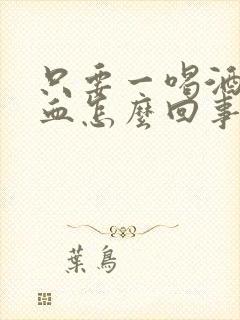 只要一喝酒
血怎麼回事
葉鳥